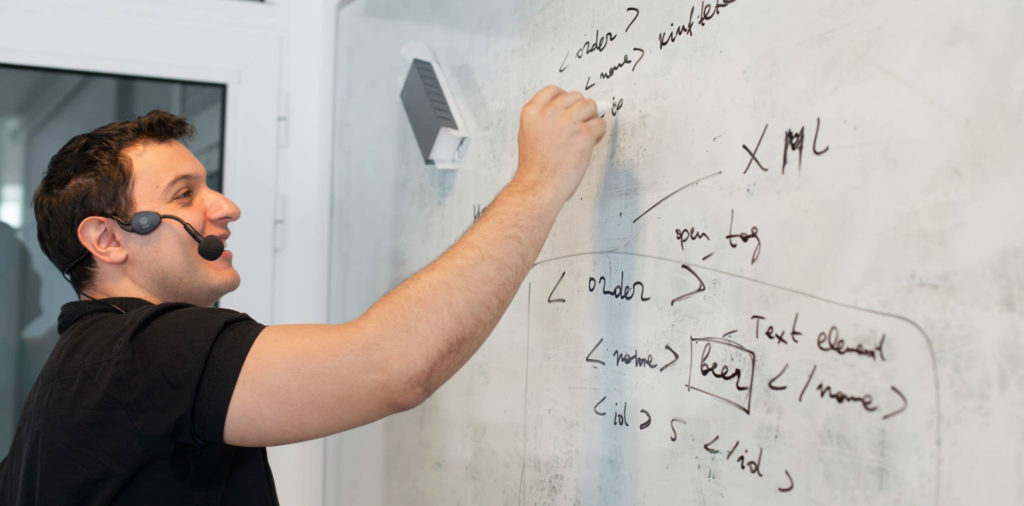 <order>
<name>
XML
open tag
<order>
Text element
<name> beer </name>
<id> 5 </id>